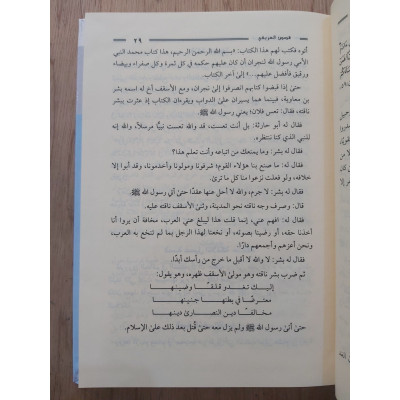 ٢٩
أتوه فكتب لهم هذا الكتاب: «بسم الله الرحمن الرحيم، هذا كتاب محمد النبي
الأمي رسول الله لنجران أن كان عليهم حكمه في كل ثمرة وكل صفراء وبيضاء
ورقيق فأفضل عليهم...» إلى آخر الكتاب.
حتى إذا قبضوا كتابهم انصرفوا إلى نجران، ومع الأسقف أخ له اسمه بشر
بن معاوية، فبينما هما يسيران على الدواب ويقرءان الكتاب إذ عثرت ببشر
ناقته، فقال بشر: تعس فلان؛ يعني رسول الله ﷺ
فقال له أبو حارثة: بل أنت تعست، قد والله تعست نبيًّا مرسلًا، والله إنه
للنبي الذي كنا ننتظره.
فقال له بشر: وما يمنعك من اتباعه وأنت تعلم هذا؟
فقال له: ما صنع بنا هؤلاء القوم؟ شرفونا ومولونا وأخدمونا، وقد أبوا إلا
خلافه، ولو فعلت نزعوا منا كل ما ترى.
فقال له بشر: لا جرم، والله لا أحل عنها عقدًا حتى آتي رسول الله ﷺ
قال: وصرف وجه ناقته نحو المدينة، وثنى الأسقف ناقته عليه.
فقال له: افهم عني، إنما قلت هذا ليبلغ عني العرب، مخافة أن يروا أنا
أخذنا حقه، أو رضينا بصوته، أو نخعنا لهذا الرجل بما لم تنخع به العرب،
ونحن أعزهم وأجمعهم دارًا.
فقال له بشر: لا والله لا أقبل ما خرج من رأسك أبدًا.
ثم ضرب بشر ناقته وهو مولي الأسقف ظهره، وهو يقول:
إليـك تغـدو قلقًـا وضينهـا
معترضًا في بطنهـا جنينهـا
مخالفًـا ديـن النصـارى دينهـا
حتى أتى رسول الله ﷺ ولم يزل معه حتى قتل بعد ذلك على الإسلام.